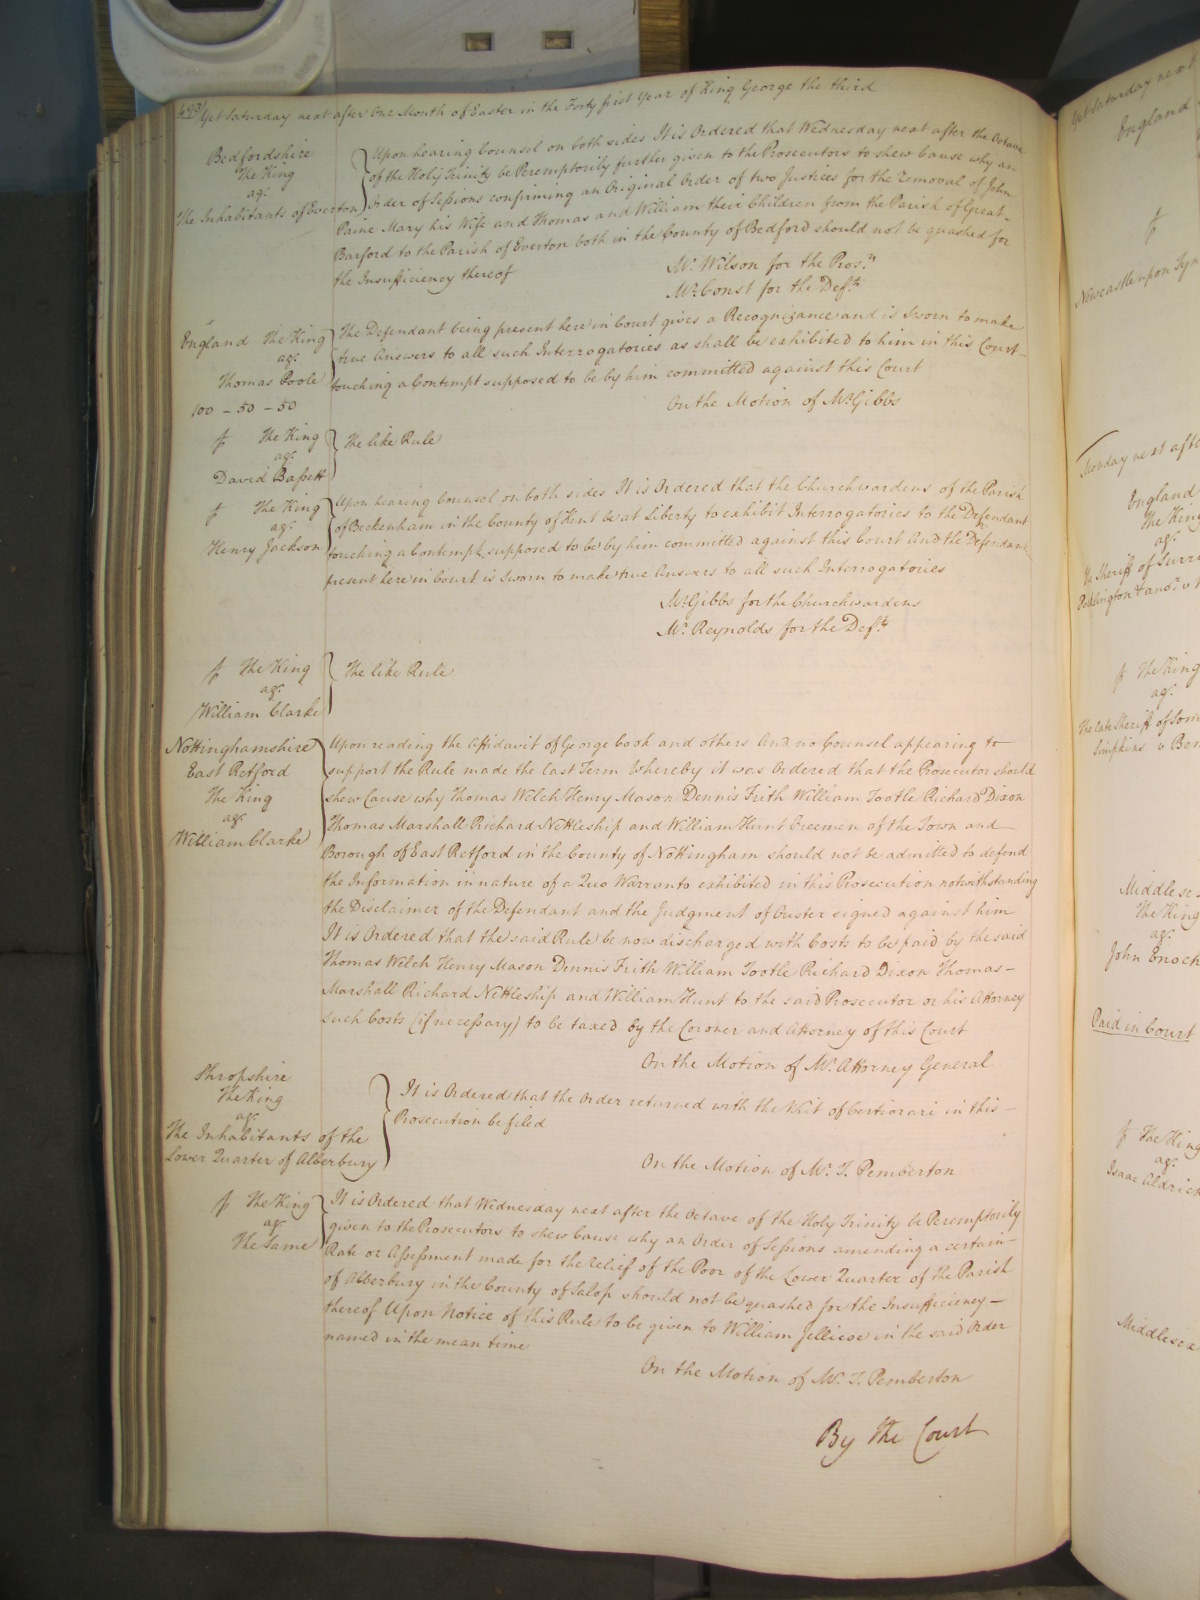 Yet Saturday next after One Month of Easter in the Forty first Year of King George the third
Bedfordshire
The King
agt
The Inhabitants of Everton
Upon hearing Counsel on both sides It is Ordered that Wednesday next after the Octave
of the Holy Trinity be Peremptorily further given to the Prosecutors to shew Cause why an
Order of Sessions confirming an Original Order of two Justices for the Removal of John
Paine Mary his Wife and Thomas and William their Children from the Parish of Great
Barford to the Parish of Everton both in the County of Bedford should not be quashed for
the Insufficiency thereof
Mr. Wilson for the Prosn
Mr. Const for the Deft
England The King
agt
Thomas Poole
100 – 50 – 50
The Defendant being present here in Court gives a Recognizance and is Sworn to make
true Answers to all such Interrogatories as shall be exhibited to him in this Court
touching a Contempt supposed to be by him committed against this Court
On the Motion of Mr. Gibbs
The King
agt
David Bassett
The like Rule
The King
agt
Henry Jackson
Upon hearing Counsel on both sides It is Ordered that the Churchwardens of the Parish
of Beckenham in the County of Kent be at Liberty to exhibit Interrogatories to the Defendant
touching a Contempt supposed to be by him committed against this Court And the Defendant
present here in Court is Sworn to make true Answers to all such Interrogatories
Mr. Gibbs for the Churchwardens
Mr. Reynolds for the Deft
The King
agt
William Clarke
The like Rule
Nottinghamshire
East Retford
The King
agt
William Clarke
Upon reading the Affidavit of George Cook and others And no Counsel appearing to
support the Rule made the last Term Whereby it was Ordered that the Prosecutor should
shew Cause why Thomas Welch Henry Mason Dennis Frith William Tootle Richard Dixon
Thomas Marshall Richard Nettleship and William Hunt Freemen of the Town and
Borough of East Retford in the County of Nottingham should not be admitted to defend
the Information in nature of a Quo Warranto exhibited in this Prosecution notwithstanding
the Disclaimer of the Defendant and the Judgment of Ouster signed against him
It is Ordered that the said Rule be now discharged with Costs to be paid by the said
Thomas Welch Henry Mason Dennis Frith William Tootle Richard Dixon Thomas –
Marshall Richard Nettleship and William Hunt to the said Prosecutor or his Attorney
such Costs (if necessary) to be taxed by the Coroner and Attorney of this Court
On the Motion of Mr. Attorney General
Shropshire
The King
agt
The Inhabitants of the
Lower Quarter of Alberbury
It is Ordered that the Order returned with the Writ of Certiorari in this –
Prosecution be filed
On the Motion of Mr. T. Pemberton
The King
agt
The Same
It is Ordered that Wednesday next after the Octave of the Holy Trinity be Peremptorily
given to the Prosecutors to shew Cause why an Order of Sessions amending a certain –
Rate or Assessment made for the relief of the Poor of the Lower Quarter of the Parish
of Alberbury in the County of Salop should not be quashed for the Insufficiency –
thereof Upon Notice of this Rule to be given to William Jellicoe in the said Order
named in the mean time
On the Motion of Mr. T. Pemberton
By the Court
Yet Saturday next
England
Newcastle upon Tyn
Monday next afte
England
The King
agt
The Sheriff of Surr
The King
agt
The late Sheriff of Som
Simpkins v Ben
Middlese
The King
agt
John Enoch
Paid in Court
The King
agt
Isaac Aldrich
Middlesex